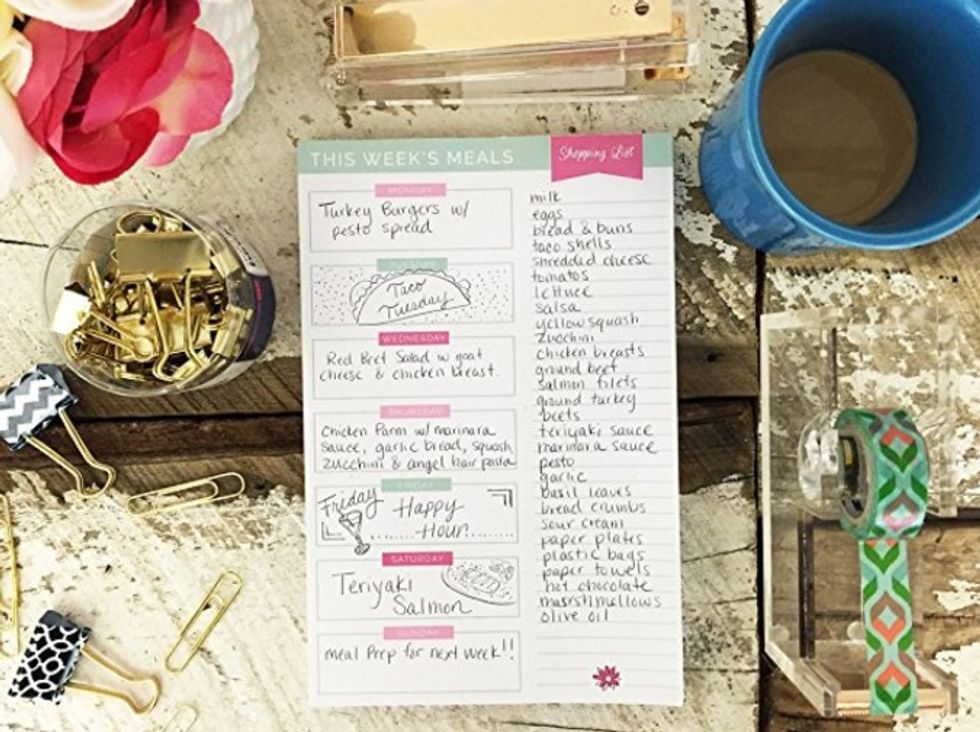 THIS WEEK'S MEALS
MONDAY
Turkey Burgers w/
pesto spread
TUESDAY
Taco
Tuesday
WEDNESDAY
Red Beet Salad w goat
cheese & chicken breast.
THURSDAY
Chicken Parm w/ marinara
sauce, garlic bread, squash,
zucchini & angel hair pasta
FRIDAY
Friday
Happy
Hour
SATURDAY
Teriyaki
Salmon
SUNDAY
meal Prep for next week!!
Shopping List
milk
eggs
bread & buns
taco shells
shredded cheese
tomatos
lettuce
salsa
yellow squash
zucchini
chicken breasts
ground beef
salmon filets
ground turkey
beets
teriyaki sauce
marinara sauce
pesto
garlic
basil leaves
bread crumbs
sour cream
paper plates
plastic bags
paper towels
hot chocolate
marshmellows
olive oil